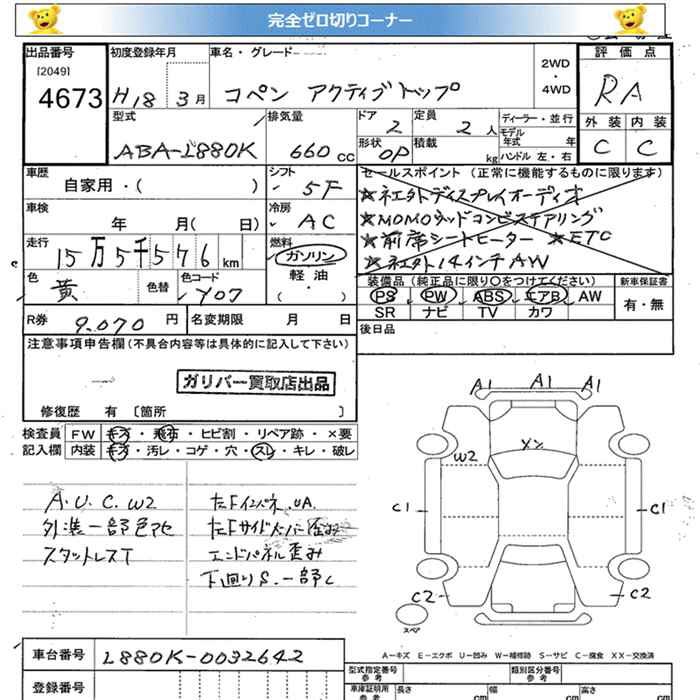 完全ゼロ切りコーナー
出品番号 初度登録年月 車名・グレード 評価点
[2049]
4673 H18 3月 コペン アクティブトップ 2WD・4WD RA
型式 排気量 ドア 定員 ディーラー・並行 外装 内装
ABA-L880K 660cc 2 2人 モデル年式 年 C C
形状 積載 ハンドル 左・右
OP kg
車歴 シフト セールスポイント(正常に機能するものに限ります)
自家用・( ) 5F
車検 冷房 ☆MOMOウッドコンビステアリング
年 月( 日) AC
走行 燃料 ☆前席シートヒーター ☆ETC
15万5千576km ガソリン
軽油
( ・ )
色 色替 色コード 装備品(純正品に限り○をつけてください) 新車保証書
黄 Y07 PS PW ABS エアB AW 有・無
SR ナビ TV カワ
R券 9.070円 名変期限 月 日 後日品
注意事項申告欄(不具合内容等は具体的に記入して下さい)
ガリバー買取店出品
修復歴 有 〔箇所 〕
検査員 FW キズ・飛石・ヒビ割・リペア跡・×要
記入欄 内装 キズ・汚レ・コゲ・穴・スレ・キレ・破レ
A1 A1 A1
W2
C1 C1
C2 C2
スペア
A.U.C.W2
外装一部色アセ
スタットレスT
エンドパネル歪み
下廻りS.一部C
A-キズ E-エクボ U-凹み W-補修跡 S-サビ C-腐食 XX-交換済
車台番号 L880K-0032642
型式指定番号 参考 類別区分番号 参考
登録番号 車庫証明用 参考 長さ cm 幅 cm 高さ cm